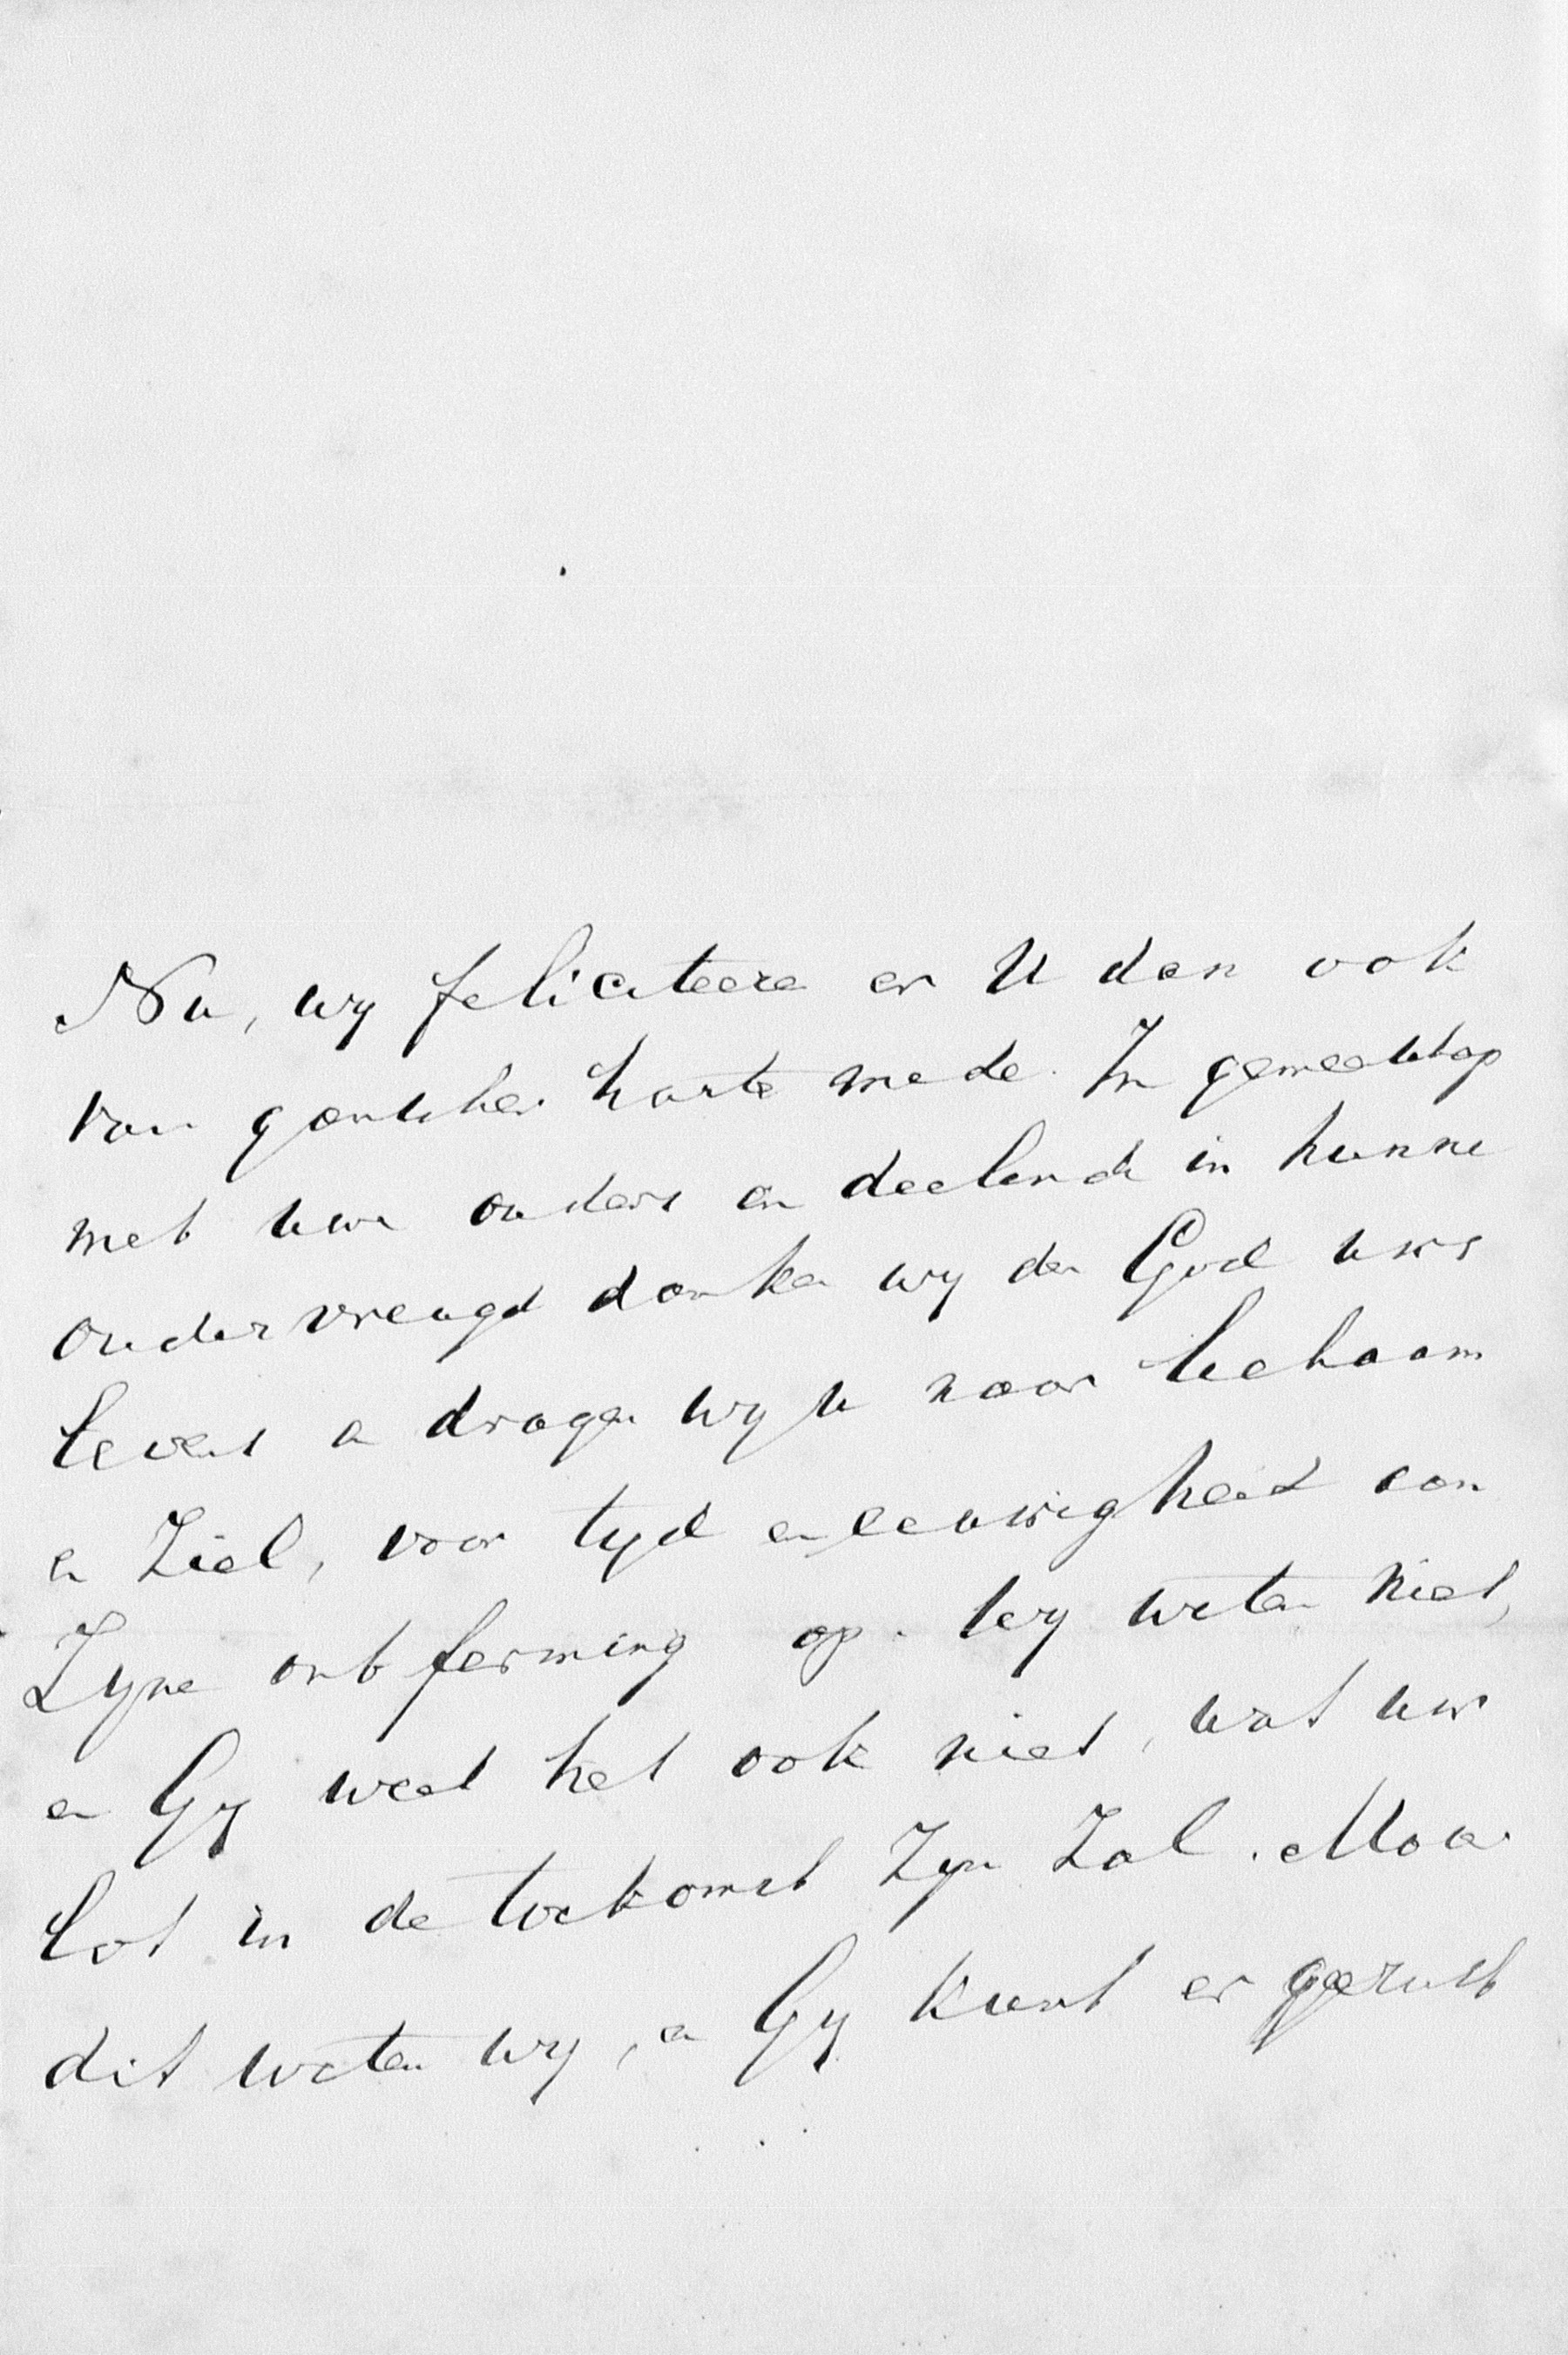 Nu, wy feliciteeren er U dan ook
van gantscher harte mede. In gemeenschap
met uwe ouders en deelende in hunne
oudervreugd danken wy den God uws
levens en dragen wy u naar lichaam
en Ziel, voor tyd en eeuwigheid aan
Zyne ontferming op. Wy weten niet,
en Gy weet het ook niet, wat uw
lot in de toekomst Zyn Zal. Maar
dit weten wy, en Gy kunt er gerust